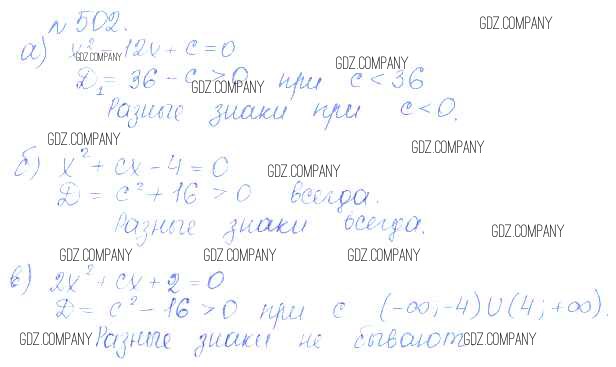 №502.
GDZ.COMPANY
а) x² - 12x + c = 0
GDZ.COMPANY
D₁ = 36 - c > 0 при c < 36
GDZ.COMPANY GDZ.COMPANY
Разные знаки при c < 0.
GDZ.COMPANY GDZ.COMPANY
б) x² + cx - 4 = 0
GDZ.COMPANY
D = c² + 16 > 0 всегда.
Разные знаки всегда.
GDZ.COMPANY
GDZ.COMPANY GDZ.COMPANY GDZ.COMPANY
в) 2x² + cx + 2 = 0
D = c² - 16 > 0 при c (-∞; -4) ∪ (4; +∞).
GDZ.COMPANY Разные знаки не бывают GDZ.COMPANY